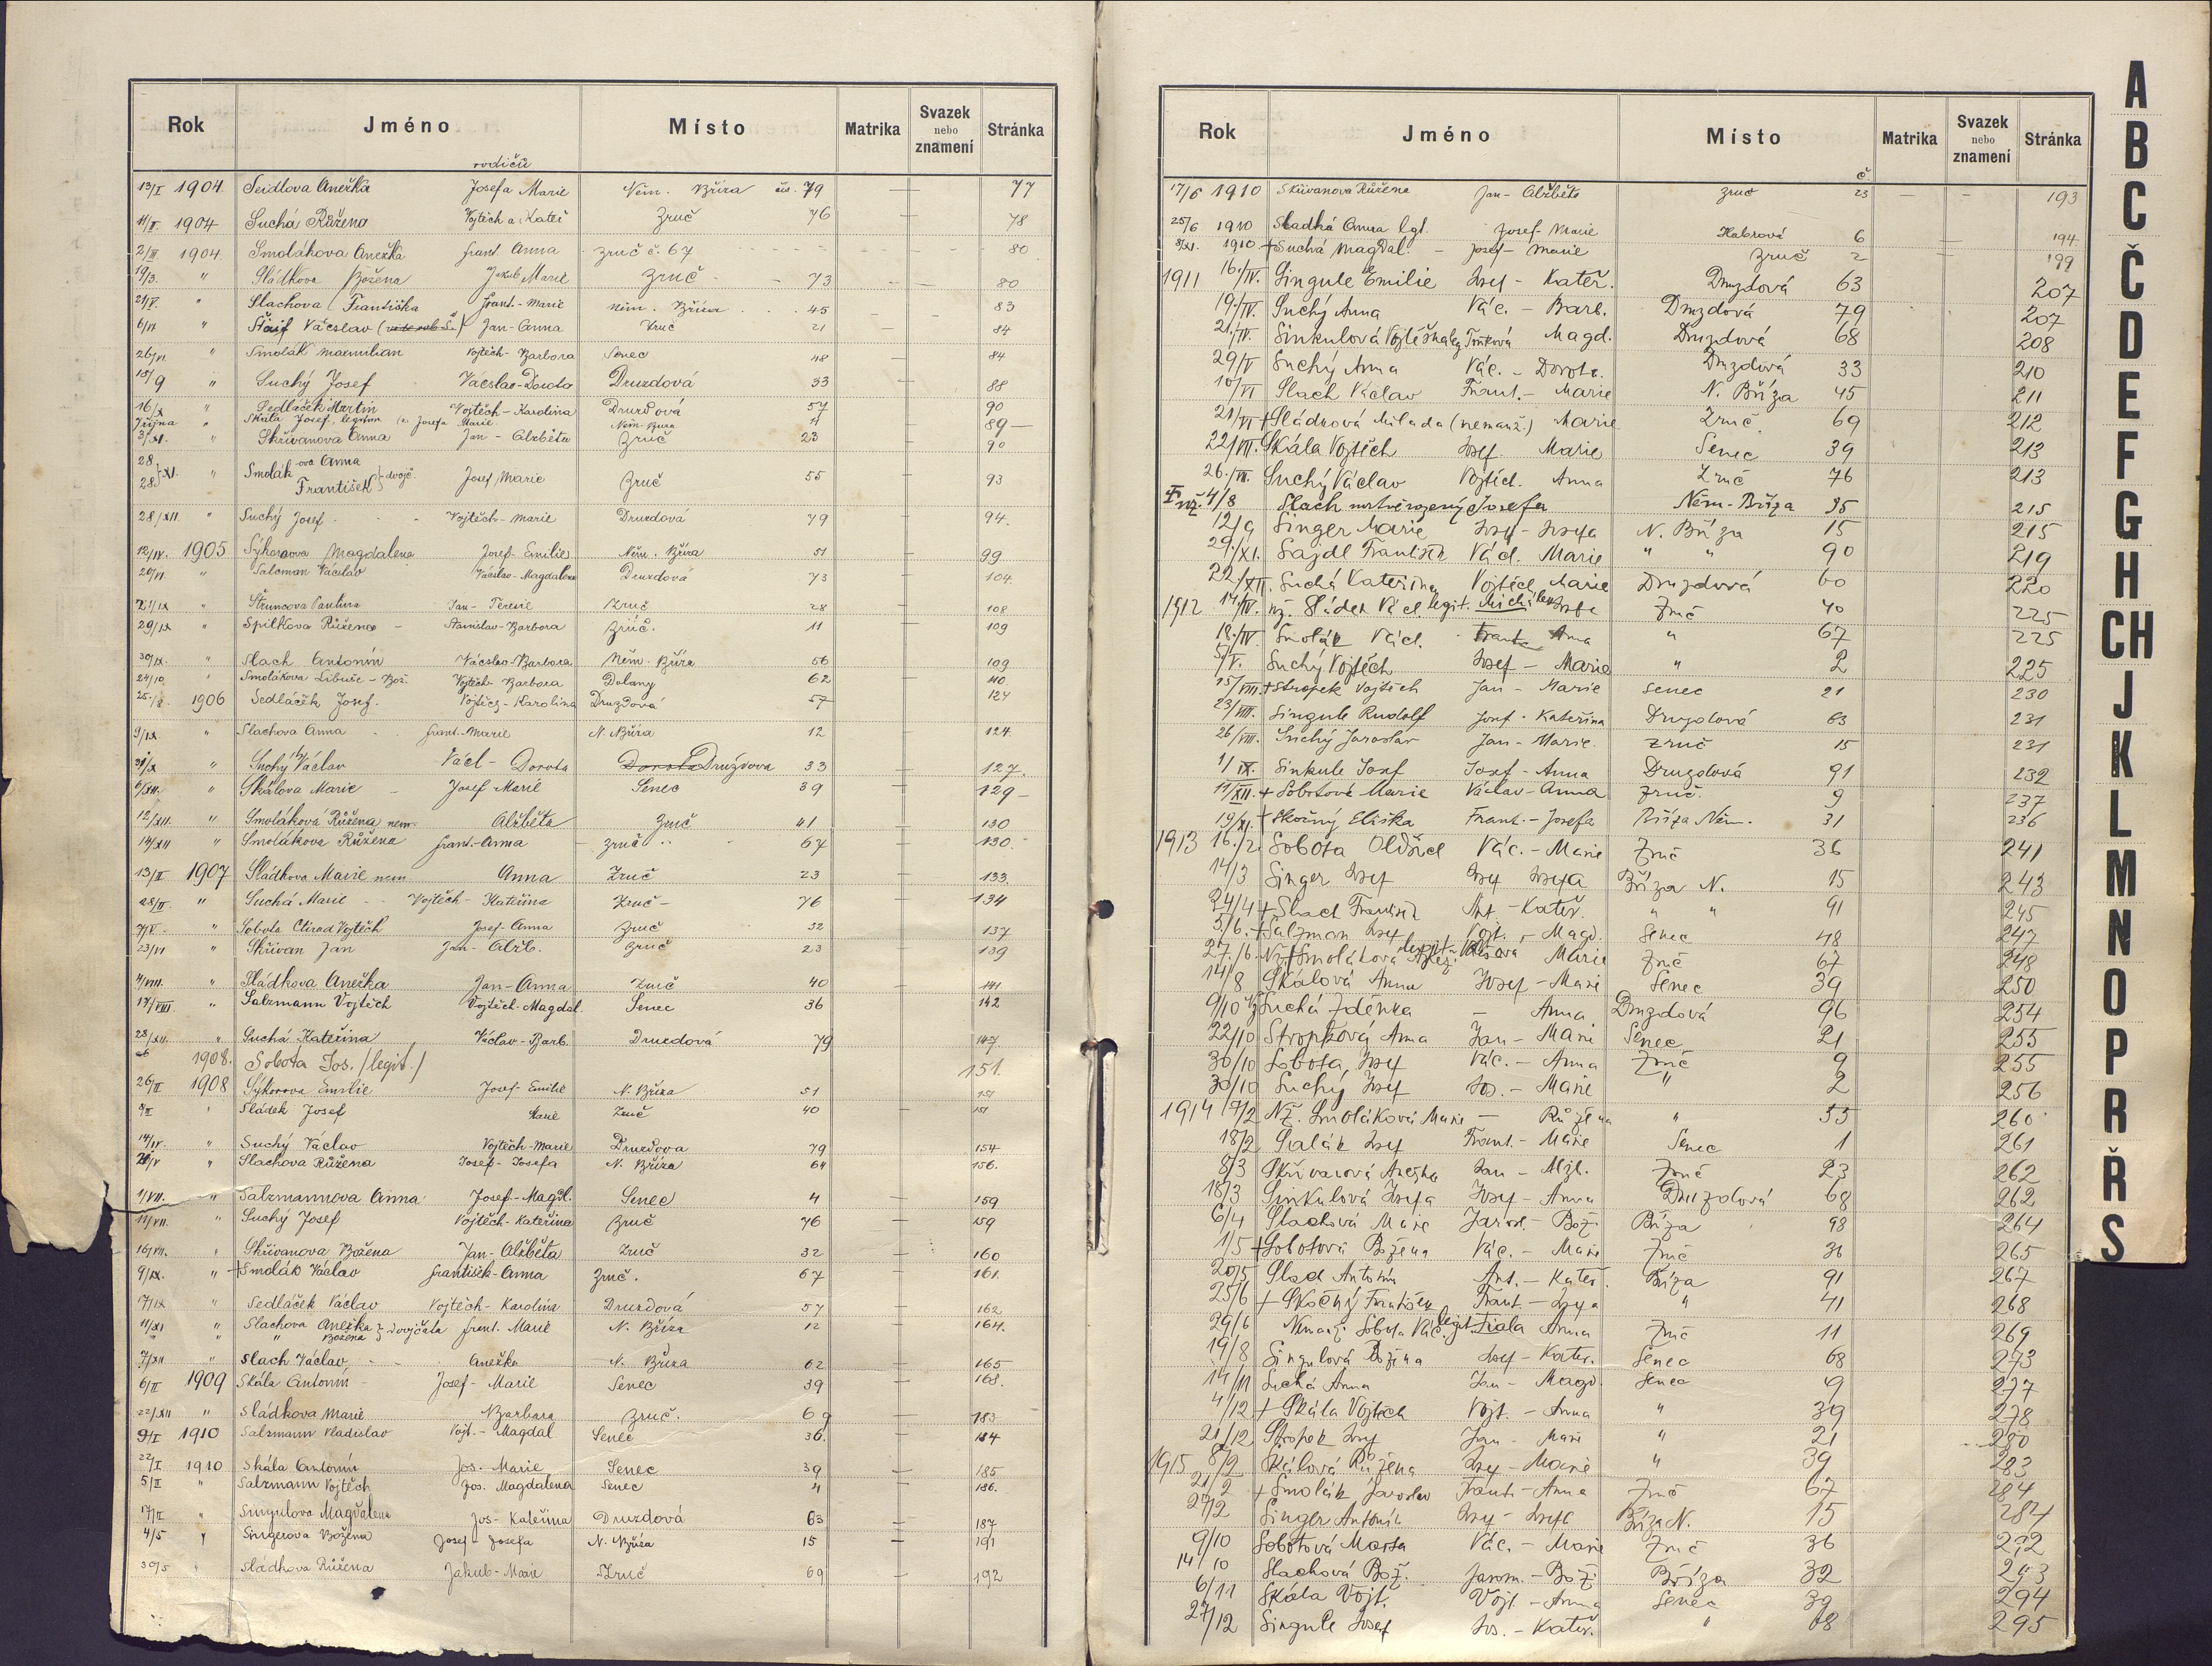 Rok Jméno Místo Matrika Svazek nebo znamení Stránka
rodičů
13/I 1904 Seidlova Anežka Josefa Marie Něm. Bříza čís. 79 — 77
11/II. 1904 Suchá Růžena Vojtěch a Kateř Zruč 76 — 78
2/III 1904 Smolákova Anežka frant. Anna Zruč č. 67 — 80
19/3. " Sládkova Božena Jakub Marie Zruč 73 — 80
21/V. " Slachova Františka frant. Marie něm. Bříza 45 — 83
6/VI " Václav Jan-Anna Zruč 21 — 84
26/VI. " Smolák Maxmilian Vojtěch-Barbora Senec 48 — 84
18/9 " Suchý Josef Václav-Dorota Druzdová 33 — 88
16/X " Sedláček Martin Vojtěch-Karolina Druzdová 57 — 90
října " Skála Josef, legitim Josefa Marie Něm. Bříza 89 —
3/XI. " Skřivanova Anna Jan - Alžběta Zruč 23 90
28 28 } XI. " Smolák ova Anna František } dvojč. Josef Marie Zruč 55 — 93
28/XII " Suchý Josef Vojtěch-Marie Druzdová 79 — 94.
12/IV. 1905 Sýkorova Magdalena Josef Emilie Něm. Bříza 51 — 99
20/VI. " Salcman Václav Václav-Magdalena Druzdová 73 — 104.
21/IX " Štruncova Pavlina Jan-Terezie Zruč 28 — 108
29/IX " Spilkova Růžena Stanislav-Barbora Zruč. 11 — 109
30/IX. " Slach Antonín Václav-Barbora Něm. Bříza 56 — 109
24/10. " Smolákova Libuše - Bož. Vojtěch-Barbora Dolany 62 — 110
25./X. 1906 Sedláček Josef. Vojtěch-Karolina Druzdová 57 — 124
9/IX " Slachova Anna frant.-Marie N. Bříza 12 — 124.
31/X " Suchý Václav Václ - Dorota Dorota Druzdova 33 — 127.
6/XII. " Skálova Marie Josef Marie Senec 39 — 129 —
12/XII. " Smoláková Růžena nem. Alžběta Zruč 41 — 130
14/XII " Smolákova Růžena frant-Anna Zruč 67 — 130.
13/II 1907 Sládkova Marie nem Anna Zruč 23 — 133.
28/II. " Suchá Marie Vojtěch-Kateřina Zruč 76 — 134
" Sobota Ctirad Vojtěch Josef-Anna Zruč 32 — 137
23/VI " Skřivan Jan Jan-Alžb. Zruč 23 — 139
4/VIII. " Sládkova Anežka Jan-Anna Zruč 40 — 141
17/VIII. " Salzmann Vojtěch Vojtěch-Magdal. Senec 36 — 142
28/XII. " Suchá Kateřina Václav-Barb. Druzdová 79 — 147.
1908. Sobota Jos. /legit./ 151.
26/II 1908 Sýkorova Emilie Josef-Emilie N. Bříza 51 — 151
" Sládek Josef Marie Zruč 40 — 151
14/IV. " Suchý Václav Vojtěch-Marie Druzdova 79 — 154
" Slachova Růžena Josef-Josefa N. Bříza 64 — 156.
1/VII. " Salzmannova Anna Josef-Magd. Senec 4 — 159
11/VII. " Suchý Josef Vojtěch-Kateřina Zruč 76 — 159
16/VII. " Skřivanova Božena Jan-Alžběta Zruč 32 — 160
9/IX. " + Smolák Václav František-Anna Zruč. 67 — 161.
17/IX " Sedláček Václav Vojtěch-Karolina Druzdová 57 — 162
11/XI " Slachova Anežka } dvojčata frant. Marie N. Bříza 12 — 164.
" " " Božena
7/XII " Slach Václav Anežka N. Bříza 62 — 165
6/II 1909 Skála Antonín Josef-Marie Senec 39 — 168.
22/XII " Sládkova Marie Barbora Zruč. 69 — 183
9/I 1910 Salzmann Vladislav Vojt.-Magdal Senec 36. — 184
22/I 1910 Skála Antonín Jos. Marie Senec 39 — 185
5/II " Salzmann Vojtěch Jos. Magdalena Senec 4 — 186.
17/II " Singulova Magdalena Jos-Kateřina Druzdová 63 — 187
4/5 " Singerova Božena Josef-Josefa N. Bříza 15 — 191
30/5 " Sládkova Růžena Jakub-Marie Zruč 69 — 192
Rok Jméno Místo Matrika Svazek nebo znamení Stránka
č.
17/6 1910 Skřivanova Růžena Jan-Alžběta Zruč 23 — — 193
25/6 1910 Sladká Anna lgt. Josef Marie Habrová 6 — 194.
3/XI. 1910 + Suchá Magdal. - Josef-Marie Zruč 2 — 199
1911 16./IV. Singule Emilie Josef - Kateř. Druzdová 63 207
19./IV. Suchý Anna Vác. - Barb. Druzdová 79 207
21./IV. Sinkulová Magd. Druzdová 68 208
29/V Suchý Anna Vác. - Dorota. Druzdová 33 210
10/VI Slach Václav Frant. - Marie N. Bříza 45 211
21/VI + Sládková Milada (nemanž.) Marie Zruč 69 212
22/VII. Skála Vojtěch Josef Marie Senec 39 213
26./VII. Suchý Václav Vojtěch Anna Zruč 76 213
4/8 Slach mrtvěrozený Josefa Něm-Bříza 35 215
12/9 Singer Marie Josef-Josefa N. Bříza 15 215
29./XI. Sajdl František Václ. Marie " " 90 219
22/XII. Suchá Kateřina Vojtěch Marie Druzdová 60 220
1912 14/IV. nž. Sládek Václ. legit. Zruč 40 225
18./IV Smolák Václ. Frant. Anna " 67 225
5/V. Suchý Vojtěch Josef - Marie " 2 225
15/VIII. + Stropek Vojtěch Jan - Marie Senec 21 230
23/VIII. Singule Rudolf Josef - Kateřina Druzdová 63 231
26/VIII. Suchý Jaroslav Jan-Marie. Zruč 15 231
1/IX. Sinkule Josef Josef-Anna Druzdová 91 232
11/XII. + Sobotová Marie Václav-Anna Zruč. 9 237
19/XI. + Skočný Eliška Frant.-Josefa Bříza Něm. 31 236
1913 16./2 Sobota Oldřich Vác. - Marie Zruč 36 241
14/3 Singer Josef Josef Josefa Bříza N. 15 243
24/4 + Slach František Ant. - Kateř. " " 91 245
5/6. + Salzman Josef Vojt. - Magd. Senec 48 247
27./6. Nž. + Smolákova Marie Zruč 67 248
14/8 Skálová Anna Josef - Marie Senec 39 250
9/10 Suchá Zdeňka — Anna Druzdová 96 254
22/10 Stropková Anna Jan - Marie Senec 21 255
30/10 Sobota, Josef Vác. - Anna Zruč 9 255
30/10 Suchý Josef Jos. - Marie " 2 256
1914 Nž. Smoláková Marie — Růžena " 55 260
18/2 Salák Josef Frant. - Marie Senec 1 261
8/3 Skřivanová Anežka Jan - Alžb. Zruč 23 262
18/3 Sinkulová Josefa Josef - Anna Druzdová 68 262
6/4 Slachová Marie Jarosl. - Bož. Bříza 98 264
1/5 + Sobotová Božena Vác. - Marie Zruč 36 265
20/5 Slach Antonín Ant. - Kateř. Bříza 91 267
25/6 + Skočný František Frant. - Josefa " 41 268
29/6 Nemanž. Sobota Vác. legit. Fiala Anna Zruč 11 269
19/8 Singulová Božena Josef - Kateř. Senec 68 273
14/11 Suchá Anna Jan - Magd. Senec 9 277
4/12 + Skála Vojtěch Vojt. - Anna " 39 278
21/12 Stropek Josef Jan - Marie " 21 280
1915 8/2 Skálová Růžena Josef - Marie " 39 283
21/2 + Smolák Jaroslav Frant. - Anna Zruč 67 284
27/2 Singer Antonín Josef - Josefa Bříza N. 15 284
9/10 Sobotová Marta Vác. - Marie Zruč 36 292
14/10 Slachová Bož. Jarom. - Bož. Bříza 32 293
6/11 Skála Vojt. Vojt. - Anna Senec 39 294
27/12 Singule Josef Jos. - Kateř. " 68 295
A
B
C
Č
D
E
F
G
H
CH
J
K
L
M
N
O
P
R
Ř
S